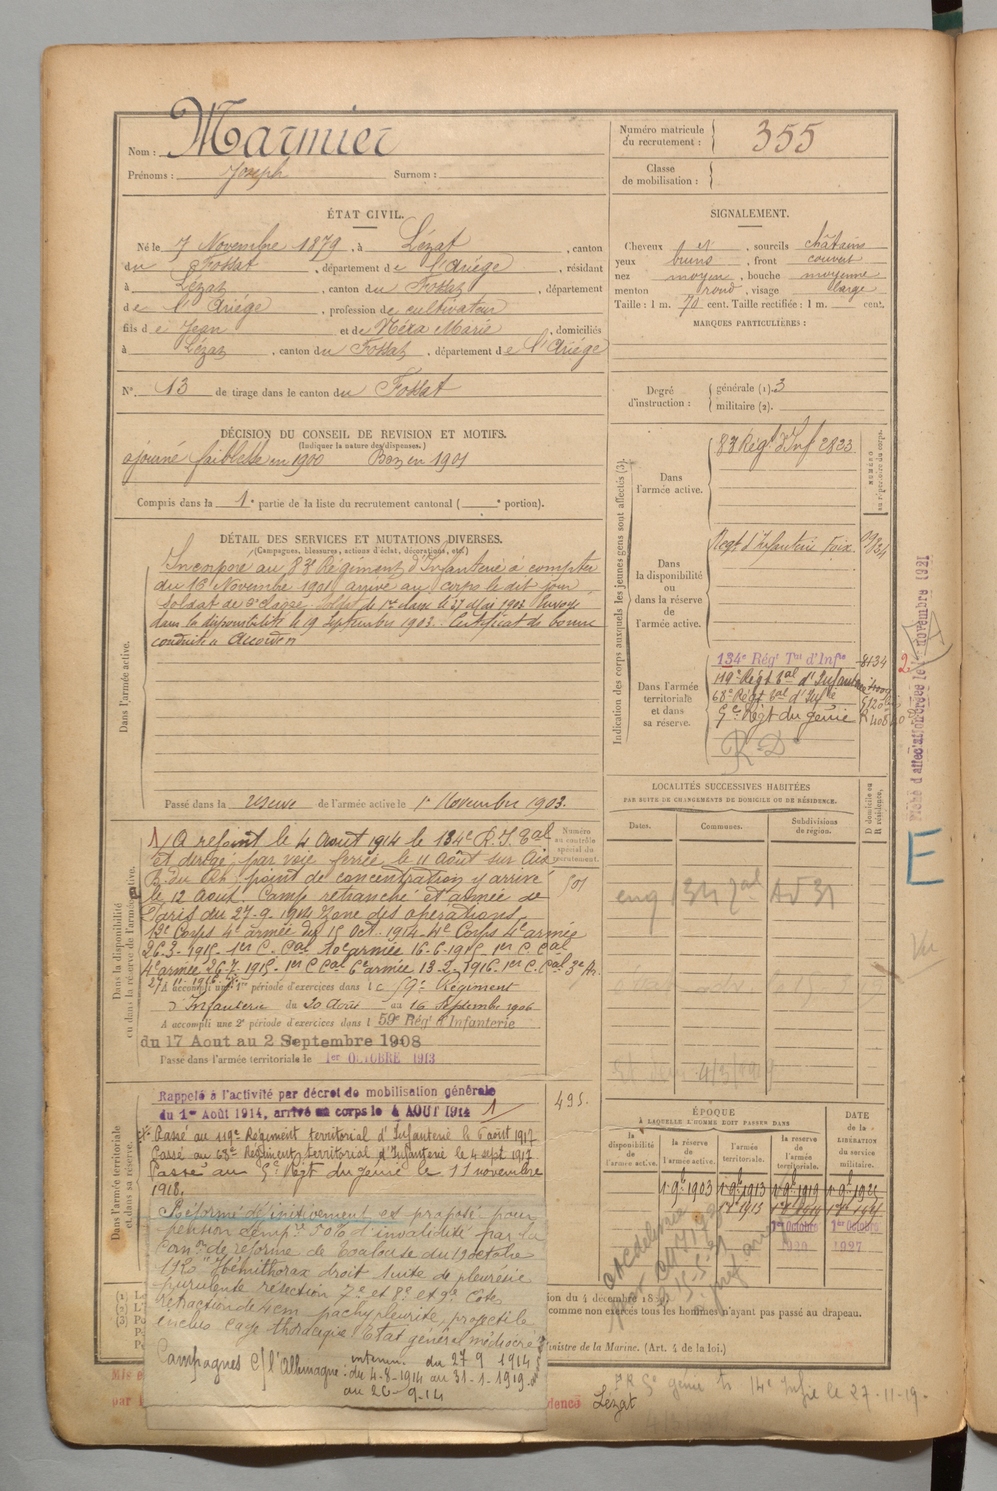 Nom : Marmier
Prénoms : Joseph Surnom :
Numéro matricule du recrutement : 355
Classe de mobilisation :
ÉTAT CIVIL.
Né le 7 Novembre 1879, à Lézat, canton
du Fossat, département de l'Ariége, résidant
à Lézat, canton du Fossat, département
de l'Ariége, profession de cultivateur
fils de Jean et de Mexa Marie, domiciliés
à Lézat, canton du Fossat, département de l'Ariége
N° 13 de tirage dans le canton du Fossat
SIGNALEMENT.
Cheveux et, sourcils châtains
yeux bruns, front couvert
nez moyen, bouche moyenne
menton rond, visage large
Taille : 1 m. 70 cent. Taille rectifiée : 1 m. cent.
MARQUES PARTICULIÈRES :
Degré d'instruction : générale (1). 3
militaire (2).
DÉCISION DU CONSEIL DE REVISION ET MOTIFS.
(Indiquer la nature des dispenses.)
ajourné faiblesse en 1900 Bon en 1901
Compris dans la 1e partie de la liste du recrutement cantonal ( e portion).
DÉTAIL DES SERVICES ET MUTATIONS DIVERSES.
(Campagnes, blessures, actions d'éclat, décorations, etc.)
Dans l'armée active.
Incorporé au 83e Régiment d'Infanterie à compter
du 16 Novembre 1901 arrivé au corps le dit jour
Soldat de 2e classe. Soldat de 1re classe le 27 Mai 1903. Envoyé
dans la disponibilité le 19 Septembre 1903. Certificat de bonne
conduite Accordé
Passé dans la réserve de l'armée active le 1er Novembre 1903.
Indication des corps auxquels les jeunes gens sont affectés (3).
NUMÉRO au répertoire du corps.
Dans l'armée active.
83 Régt d'Inf 2823
Dans la disponibilité ou dans la réserve de l'armée active.
Regt d'Infanterie Foix
Dans l'armée territoriale et dans sa réserve.
134e Régt Tal d'Infie 8134
119e Régt Tal d'Infanterie
68e Régt Tal d'Infie
5e Régt du génie
R D
Fiche d'affectation créée le novembre 1921
E
Vu
Dans la disponibilité ou dans la réserve de l'armée active.
Numéro au contrôle spécial du recrutement.
501
1/ A rejoint le 4 Août 1914 le 134e R. I. Tal
et dirigé par voie ferrée le 11 août sur Aix
point de concentration y arrivé
le 12 Août. Camp retranché et armée de
Paris du 27-9-1914 Zone des opérations
12e Corps 4e armée du 15 Oct. 1914 4e Corps 4e armée
26-3-1915. 1er C. Cal 10e armée 16-6-1915. 1er C. Cal
4e armée 26-7-1915. 1er C Cal 6e armée 13-2-1916. 1er C. Cal 3e A.
A accompli une 1re période d'exercices dans le 59e Régiment
d'Infanterie du 20 Août au 16 Septembre 1906
A accompli une 2e période d'exercices dans l 59e Régt d'Infanterie
du 17 Aout au 2 Septembre 1908
Passé dans l'armée territoriale le 1er OCTOBRE 1913
LOCALITÉS SUCCESSIVES HABITÉES
PAR SUITE DE CHANGEMENTS DE DOMICILE OU DE RÉSIDENCE.
Dates. Communes. Subdivisions de région. D domicile ou R résidence.
134 Tal
Dans l'armée territoriale et dans sa réserve.
Rappelé à l'activité par décret de mobilisation générale
du 1er Août 1914, arrivé au corps le 4 AOUT 1914 1/
495.
Passé au 119e Régiment territorial d'Infanterie le 6 août 1917
Passé au 68e Régiment territorial d'Infanterie le 4 sept 1917
Passé au 5e Régt du génie le 11 novembre
1918.
Réformé définitivement et proposé pour
pension temp 50% d'invalidité par la
Comon de réforme de Toulouse du 19 octobre
1920 "Hémithorax droit suite de pleurésie
purulente résection 7e et 8e et 9e côtes
rétraction de 4 cm pachypleurite, projectile
inclus cage thoracique Etat général médiocre"
Campagnes c/ l'Allemagne : intérieur du 4-8-1914
au 26-9-14
du 27 9 1914
au 31-1-1919.
ÉPOQUE
À LAQUELLE L'HOMME DOIT PASSER DANS
la disponibilité de l'armée active.
la réserve de l'armée active.
l'armée territoriale.
la réserve de l'armée territoriale.
DATE de la LIBÉRATION du service militaire.
1 9bre 1903 1 9bre 1913 1 9bre 1919
1er Octobre 1920 1er Octobre 1927
comme non exercés tous les hommes n'ayant pas passé au drapeau.
Ministre de la Marine. (Art. 4 de la loi.)
Lézat
5e génie le 27-11-19.